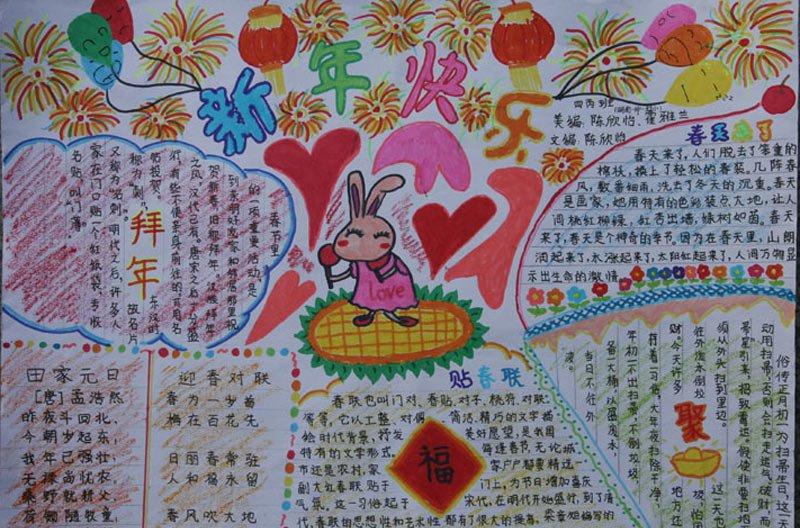 新年快乐
四丙班
美编:陈欣怡、崔雅兰
文编:陈欣怡
春天来了
春天来了,人们脱去了笨重的
棉袄,换上了轻松的春装。几阵春
风,数番细雨,洗去了冬天的沉重。春天
是画家,她用特有的色彩装点大地,让人
间桃红柳绿,红杏出墙,绿树如茵。春天
来了,春天是个神奇的季节,因为在春天里,山朗
润起来了,水涨起来了,太阳红起来了,人间万物显
示出生命的激情。
拜年
春节里
的一项重要活动是
到亲有好友家和邻居那里祝
贺新春,旧称拜年。汉族拜年
之风,汉代已有。唐宋之后十分盛
行,有些不便亲身前往的可用名
帖投贺。
东汉时
称为“刺”,
故名片
又称“名刺”。明代之后,许多人
家在门口贴一个红纸袋,专收
名帖,叫“门簿”。
love
田家元日
[唐]孟浩然
昨夜斗回北,
今朝岁起东;
我年已强壮,
无禄尚忧农。
桑野就耕父,
荷锄随牧童;
迎春对联
春为一岁首
梅在百花先
日丽春常驻
人和福永留
春风吹大地
贴春联
春联也叫门对、春贴、对子、桃符、对联
等等,它以工整、对偶、简洁、精巧的文字描
绘时代背景,抒发美好愿望,是我国
特有的文学形式。每逢春节,无论城
市还是农村,家家户户都要精选一
副大红春联贴于门上,为节日增加喜庆
气氛。这一习俗起于宋代,在明代开始盛行,到了清
代,春联的思想性和艺术性都有了很大的提高,梁章矩编写的
福
俗传正月初一为扫帚生日,这一天不能
动用扫帚,否则会扫走运气、破财,
须从外头扫到里边。
往外泼水倒垃
财今天许多
年初一不出扫帚,不倒垃圾,
备一大桶,以盛废水,
当日不往外
泼。
聚